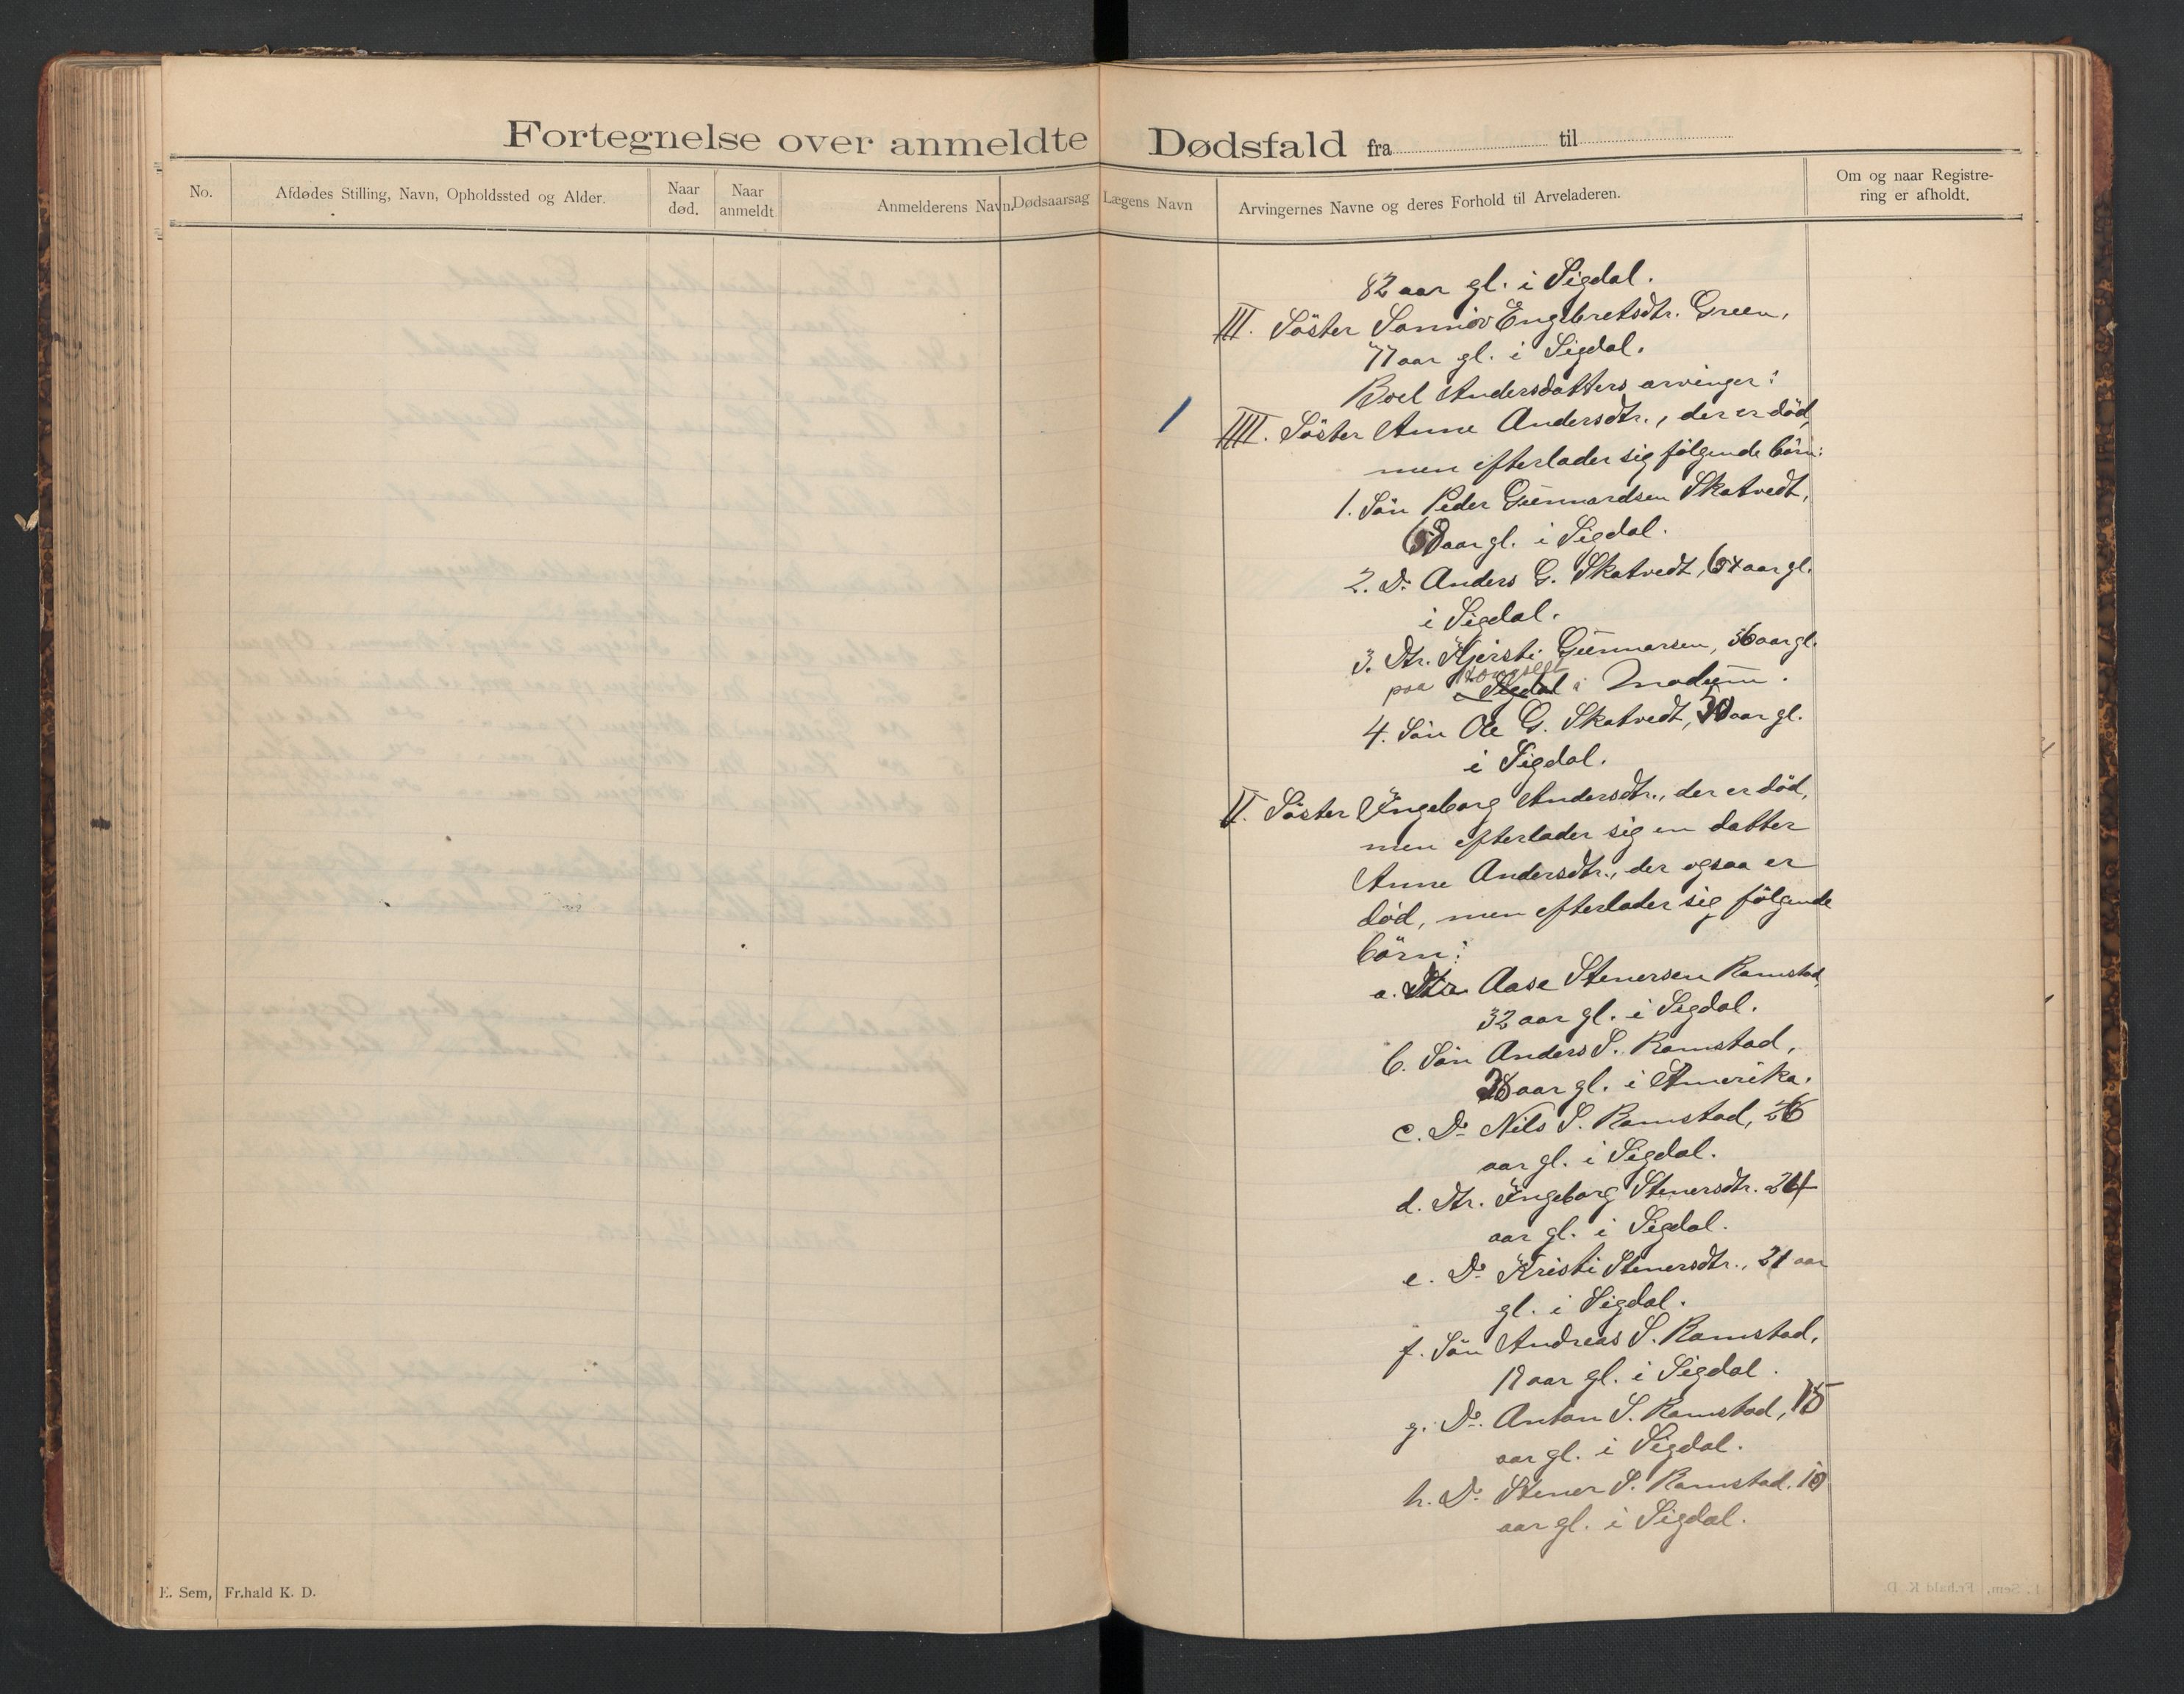 Fortegnelse over anmeldte Dødsfald fra til
No.
Afdødes Stilling, Navn, Opholdssted og Alder.
Naar død.
Naar anmeldt
Anmelderens Navn.
Dødsaarsag
Lægens Navn
Arvingernes Navne og deres Forhold til Arveladeren.
Om og naar Registre-
ring er afholdt.
82 aar gl. i Sigdal.
III. Söster Sönnöv Engebretsdtr. Green,
77 aar gl. i Sigdal.
Boel Andersdatters arvinger:
IIII. Söster Anne Andersdtr., der er död,
men efterlader sig følgende börn:
1. Sön Peder Gunnardsen Skatvedt,
aar gl. i Sigdal.
2. Do Anders G. Skatvedt, 64 aar gl.
i Sigdal.
3. Dtr. Kjersti Gunnarsen, 56 aar gl.
paa i Modum.
4. Sön Ole G. Skatvedt, 50 aar gl.
i Sigdal.
V. Söster Ingeborg Andersdtr., der er död,
men efterlader sig en datter
Anne Andersdtr., der ogsaa er
död, men efterlader sig fölgende
börn:
a. Dtr. Aase Stenersen Ramstad,
32 aar gl. i Sigdal.
b. Sön Anders S. Ramstad,
28 aar gl. i Amerika.
c. Do Nils S. Ramstad, 26
aar gl. i Sigdal.
d. Dtr. Ingeborg Stenersdtr. 24
aar gl. i Sigdal.
e. Do Kristi Stenersdtr., 21 aar
gl. i Sigdal.
f. Sön Andreas S. Ramstad,
17 aar gl. i Sigdal.
g. Do. Anton S. Ramstad, 15
aar gl. i Sigdal.
h. Do Stener S. Ramstad. 10
aar gl. i Sigdal.
E. Sem, Fr.hald K. D.